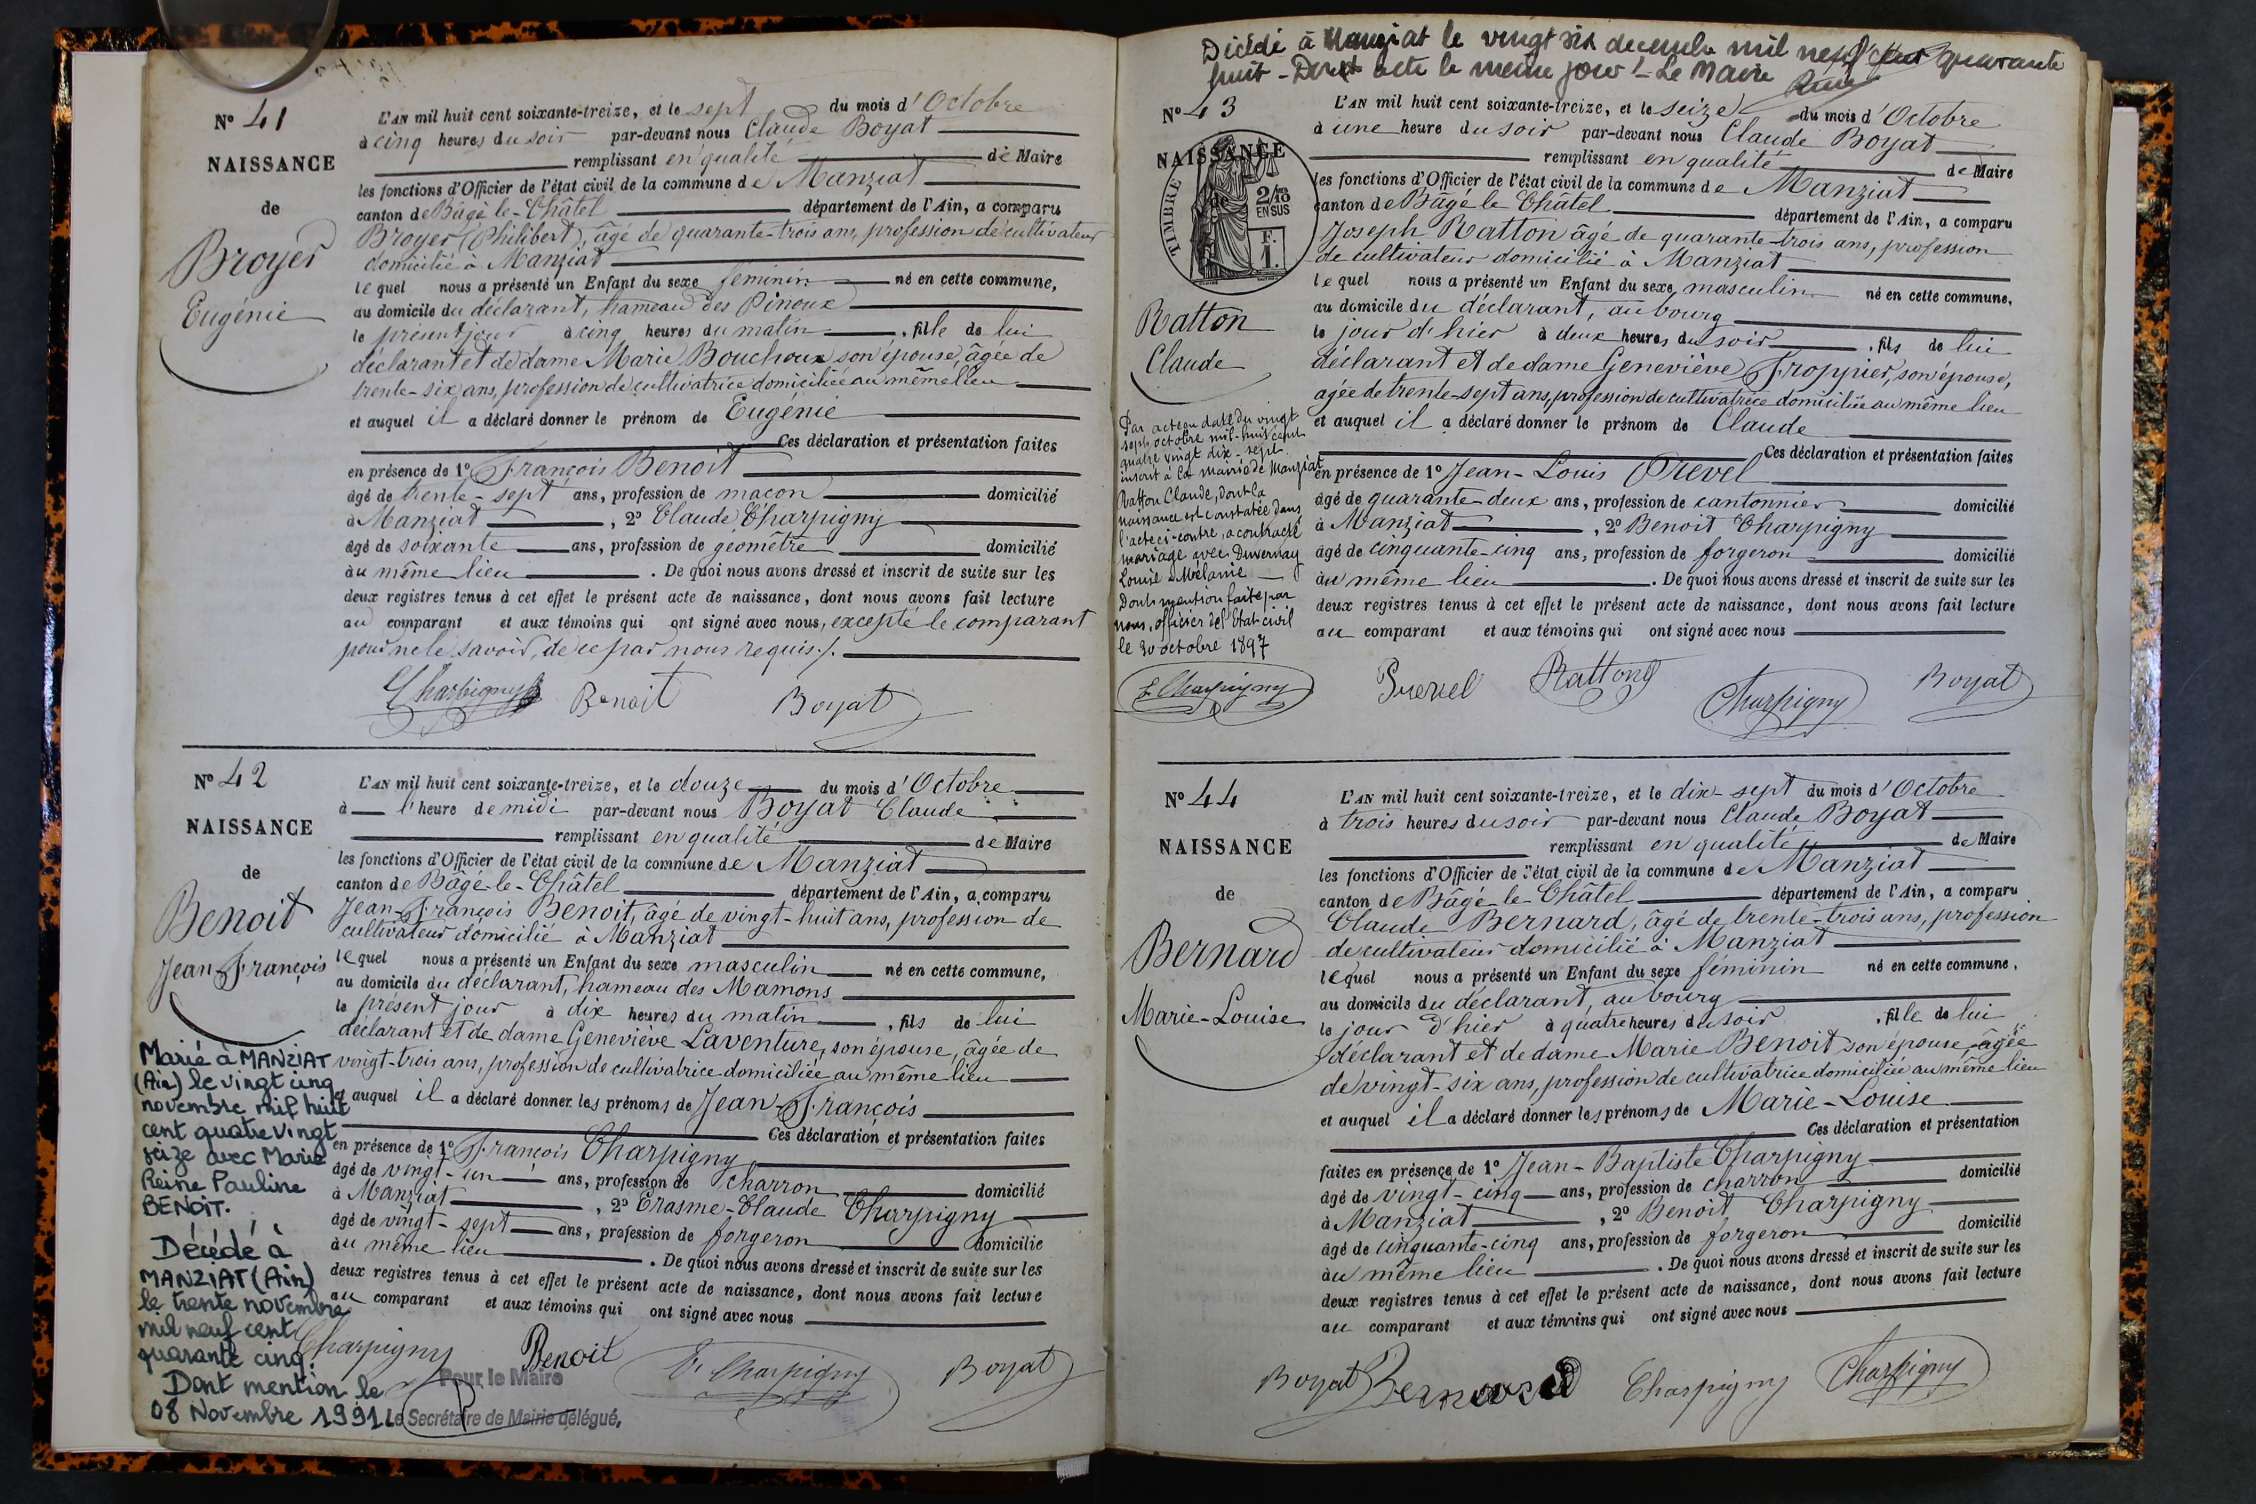 N° 41
NAISSANCE
de
Broyer
Eugénie
L'AN mil huit cent soixante-treize, et le sept du mois d'Octobre
à cinq heures du soir par-devant nous Claude Boyat
remplissant en qualité de Maire
les fonctions d'Officier de l'état civil de la commune de Manziat
canton de Bâgé-le-Châtel département de l'Ain, a comparu
Broyer (Philibert), âgé de quarante-trois ans, profession de cultivateur
domicilié à Manziat
lequel nous a présenté un Enfant du sexe féminin né en cette commune,
au domicile du déclarant, hameau des Pinoux
le présent jour à cinq heures du matin, fille de lui
déclarant et de dame Marie Bouchoux son épouse, âgée de
trente-six ans, profession de cultivatrice domiciliée au même lieu
et auquel il a déclaré donner le prénom de Eugénie
Ces déclaration et présentation faites
en présence de 1° François Benoit
âgé de trente-sept ans, profession de maçon domicilié
à Manziat, 2° Claude Charpigny
âgé de soixante ans, profession de géomètre domicilié
au même lieu. De quoi nous avons dressé et inscrit de suite sur les
deux registres tenus à cet effet le présent acte de naissance, dont nous avons fait lecture
au comparant et aux témoins qui ont signé avec nous, excepté le comparant
pour ne le savoir, de ce par nous requis./.
Charpigny Benoit Boyat
N° 42
NAISSANCE
de
Benoit
Jean-François
L'AN mil huit cent soixante-treize, et le douze du mois d'Octobre
à l'heure de midi par-devant nous Boyat Claude
remplissant en qualité de Maire
les fonctions d'Officier de l'état civil de la commune de Manziat
canton de Bâgé-le-Châtel département de l'Ain, a comparu
Jean-François Benoit, âgé de vingt-huit ans, profession de
cultivateur domicilié à Manziat
lequel nous a présenté un Enfant du sexe masculin né en cette commune,
au domicile du déclarant, hameau des Mamons
le présent jour à dix heures du matin, fils de lui
déclarant et de dame Geneviève Laventure, son épouse, âgée de
vingt-trois ans, profession de cultivatrice domiciliée au même lieu
et auquel il a déclaré donner les prénoms de Jean-François
Ces déclaration et présentation faites
en présence de 1° François Charpigny
âgé de vingt-un ans, profession de charron domicilié
à Manziat, 2° Erasme-Claude Charpigny
âgé de vingt-sept ans, profession de forgeron domicilié
au même lieu. De quoi nous avons dressé et inscrit de suite sur les
deux registres tenus à cet effet le présent acte de naissance, dont nous avons fait lecture
au comparant et aux témoins qui ont signé avec nous
Charpigny Benoit F. Charpigny Boyat
Marié à MANZIAT
(Ain) le vingt cinq
novembre mil huit
cent quatre vingt
seize avec Marie
Reine Pauline
BENOIT.
Décédé à
MANZIAT (Ain)
le trente novembre
mil neuf cent
quarante cinq.
Dont mention le
08 Novembre 1991
Pour le Maire
Le Secrétaire de Mairie délégué,
Décédé à Manziat le vingt six decembre mil neuf cent quarante
huit - Dont acte le meme jour - Le Maire
N° 43
NAISSANCE
de
TIMBRE
2/10 EN SUS
F. 1.
Ratton
Claude
L'AN mil huit cent soixante-treize, et le seize du mois d'Octobre
à une heure du soir par-devant nous Claude Boyat
remplissant en qualité de Maire
les fonctions d'Officier de l'état civil de la commune de Manziat
canton de Bâgé le Châtel département de l'Ain, a comparu
Joseph Ratton âgé de quarante-trois ans, profession
de cultivateur domicilié à Manziat
lequel nous a présenté un Enfant du sexe masculin né en cette commune,
au domicile du déclarant, au bourg
le jour d'hier à deux heures du soir, fils de lui
déclarant et de dame Geneviève Froppier, son épouse,
agée de trente-sept ans, profession de cultivatrice domiciliée au même lieu
et auquel il a déclaré donner le prénom de Claude
Ces déclaration et présentation faites
en présence de 1° Jean-Louis Prevel
âgé de quarante-deux ans, profession de cantonnier domicilié
à Manziat, 2° Benoit Charpigny
âgé de cinquante-cinq ans, profession de forgeron domicilié
au même lieu. De quoi nous avons dressé et inscrit de suite sur les
deux registres tenus à cet effet le présent acte de naissance, dont nous avons fait lecture
au comparant et aux témoins qui ont signé avec nous
Par acte en date du vingt
sept octobre mil-huit cent
quatre vingt dix-sept
inscrit à la mairie de Manziat
Ratton Claude, dont la
naissance est constatée dans
l'acte ci-contre, a contracté
mariage avec Duvernay
Louise Mélanie
Dont mention faite par
nous, officier de l'Etat-civil
le 30 octobre 1897
F. Charpigny Prevel Ratton Charpigny Boyat
N° 44
NAISSANCE
de
Bernard
Marie-Louise
L'AN mil huit cent soixante-treize, et le dix-sept du mois d'Octobre
à trois heures du soir par-devant nous Claude Boyat
remplissant en qualité de Maire
les fonctions d'Officier de l'état civil de la commune de Manziat
canton de Bâgé-le-Châtel département de l'Ain, a comparu
Claude Bernard, âgé de trente-trois ans, profession
de cultivateur domicilié à Manziat
lequel nous a présenté un Enfant du sexe féminin né en cette commune,
au domicile du déclarant, au bourg
le jour d'hier à quatre heures du soir, fille de lui
déclarant et de dame Marie Benoit son épouse âgée
de vingt-six ans, profession de cultivatrice domiciliée au même lieu
et auquel il a déclaré donner les prénoms de Marie-Louise
Ces déclaration et présentation
faites en présence de 1° Jean-Baptiste Charpigny
âgé de vingt-cinq ans, profession de charron domicilié
à Manziat, 2° Benoit Charpigny
âgé de cinquante-cinq ans, profession de forgeron domicilié
au même lieu. De quoi nous avons dressé et inscrit de suite sur les
deux registres tenus à cet effet le présent acte de naissance, dont nous avons fait lecture
au comparant et aux témoins qui ont signé avec nous
Boyat Bernard Charpigny Charpigny